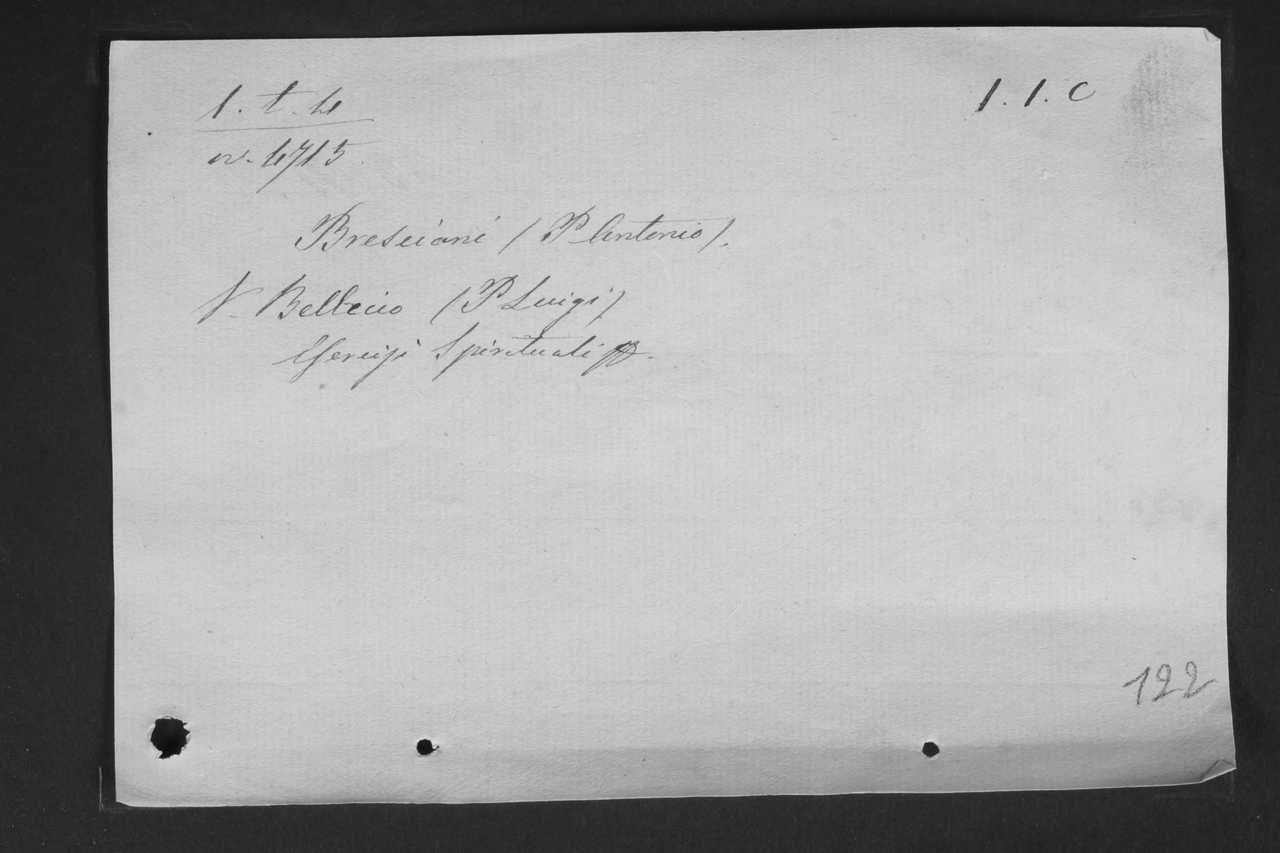 1. t. 4
1. 1. C
n. 4715
Bresciani (P. Antonio).
V. Bellecio (P. Luigi)
Esercizi Spirituali
122